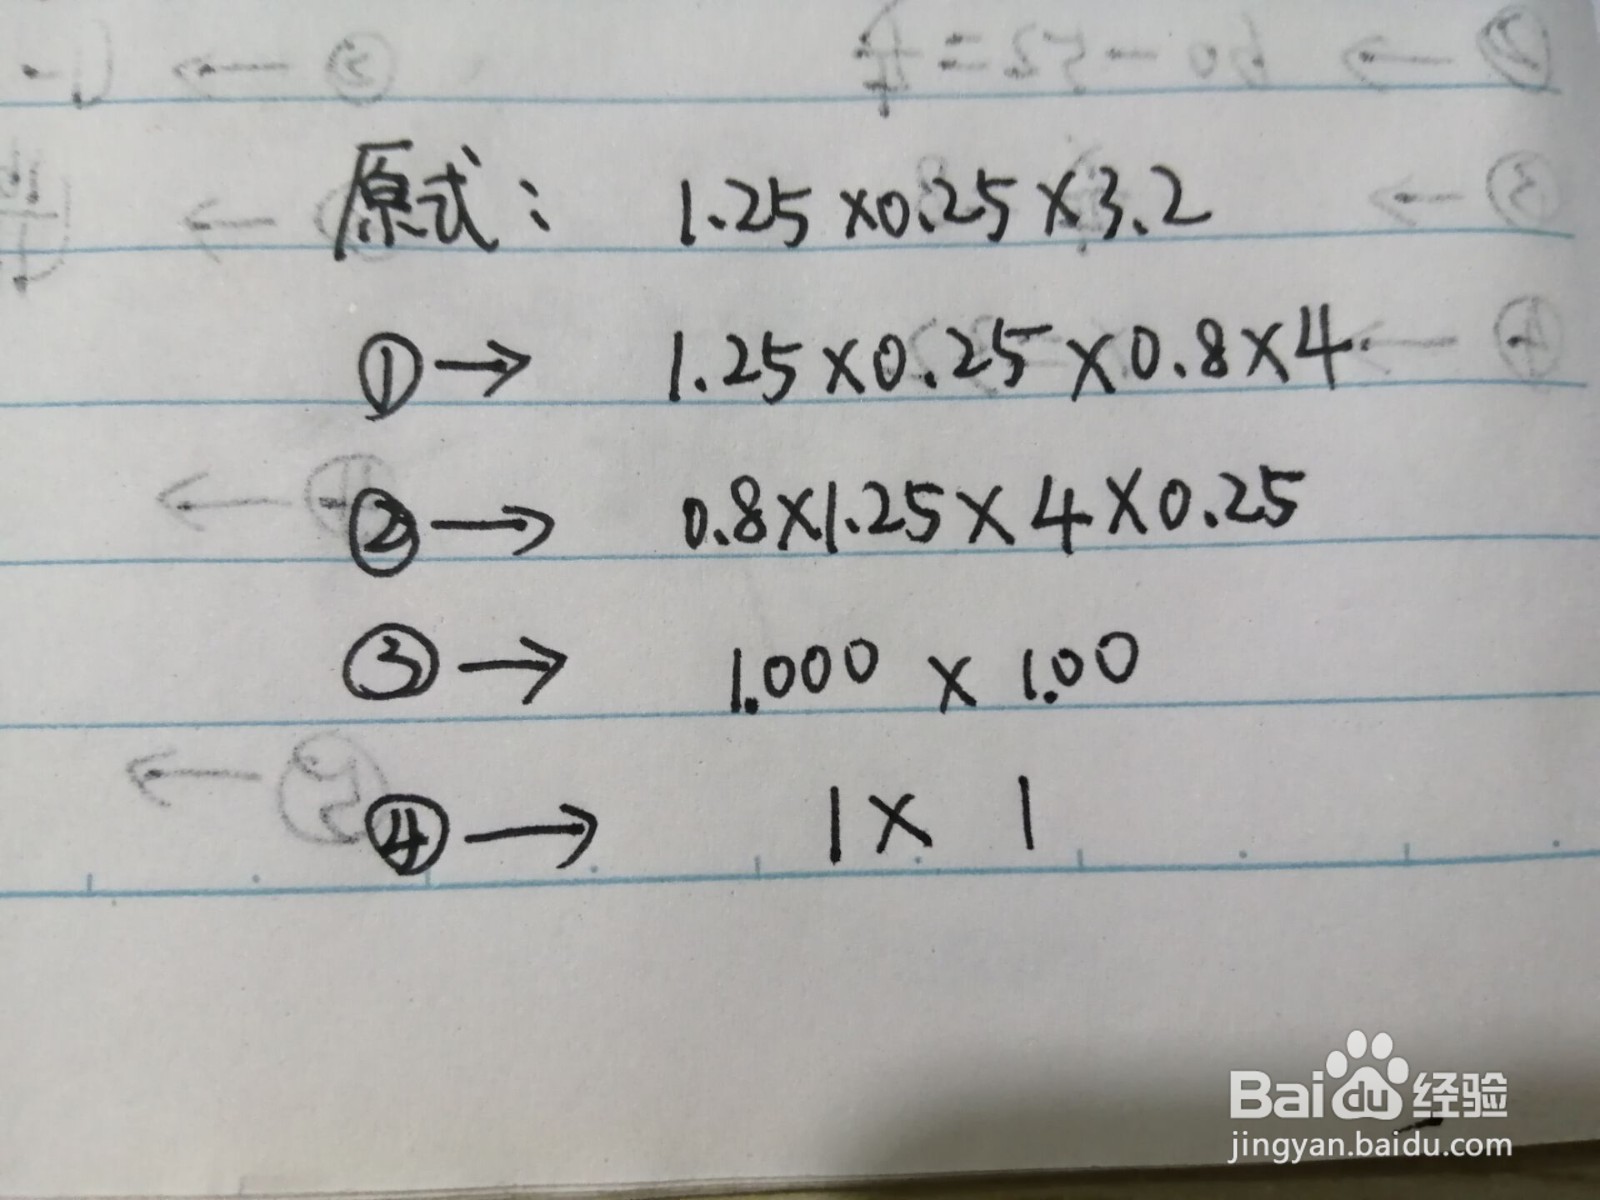 原式： 1.25×0.25×3.2
①→ 1.25×0.25×0.8×4
②→ 0.8×1.25×4×0.25
③→ 1.000×1.00
④→ 1×1
Baidu经验
jingyan.baidu.com